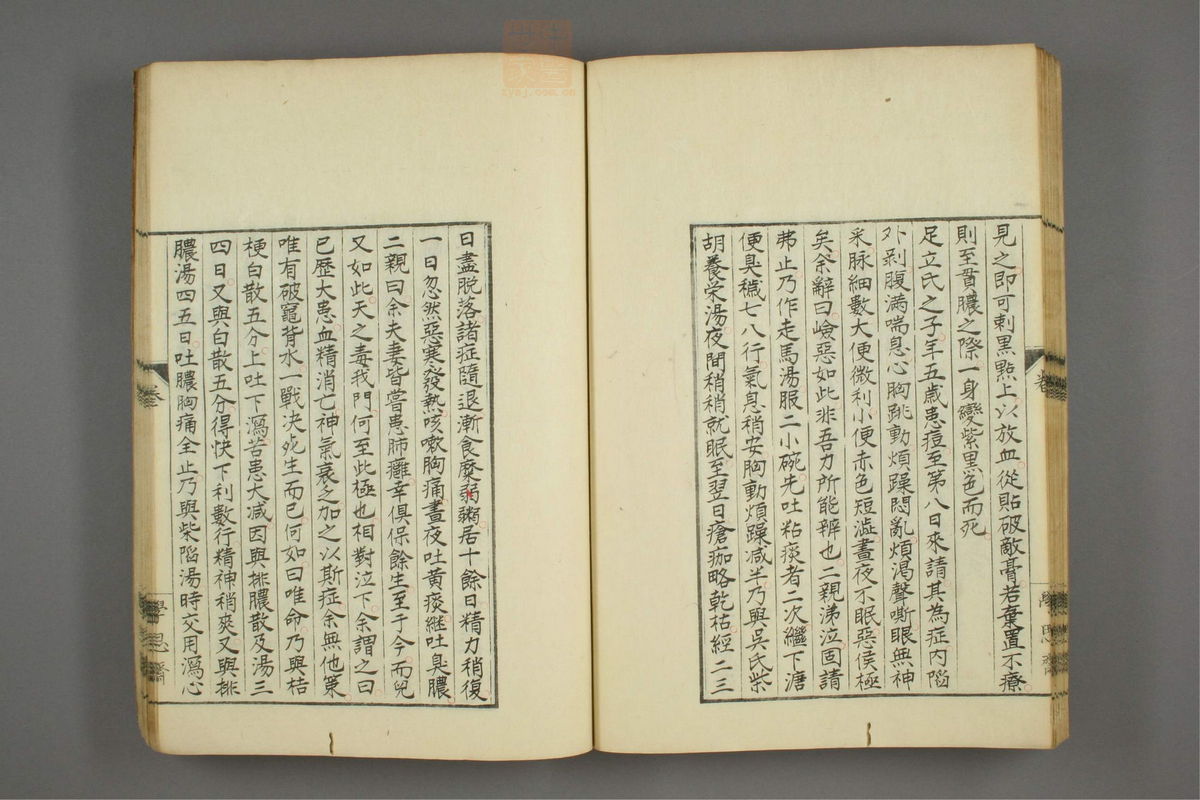 見之即可刺黒㸃上以放血從貼破敵膏若棄置不療
則至貫膿之際一身變紫黒色而死
足立氏之子年五歳患痘至第八日來請其為症内陷
外剥腹満喘息心胸跳動煩躁悶亂煩渇聲嘶眼無神
采脉細數大便微利小便赤色短澁晝夜不眠惡侯極
矣余辭曰嶮惡如此非吾力所能辨也二親涕泣固請
弗止乃作走馬湯服二小碗先吐粘痰者二次繼下溏
便臭穢七八行氣息稍安胸動煩躁减半乃與吳氏柴
胡養栄湯夜間稍稍就眠至翌日瘡痂略乾枯經二三
日盡脱落諸症隨退漸食糜粥居十餘日精力稍復
一日忽然惡寒發熱咳嗽胸痛晝夜吐黄痰繼吐臭膿
二親曰余夫妻皆嘗患肺癰幸倶保餘生至于今而兒
又如此天之毒我門何至此極也相對泣下余謂之曰
已歴大患血精消亡神氣衰乏加之以斯症余無他策
唯有破竈背水一戰決死生而已何如曰唯命乃與桔
梗白散五分上吐下瀉苦患大减因與排膿散及湯三
四日又與白散五分得快下利數行精神稍爽又與排
膿湯四五日吐膿胸痛全止乃與柴陷湯時交用瀉心
卷
學思齋
zysj.com.cn